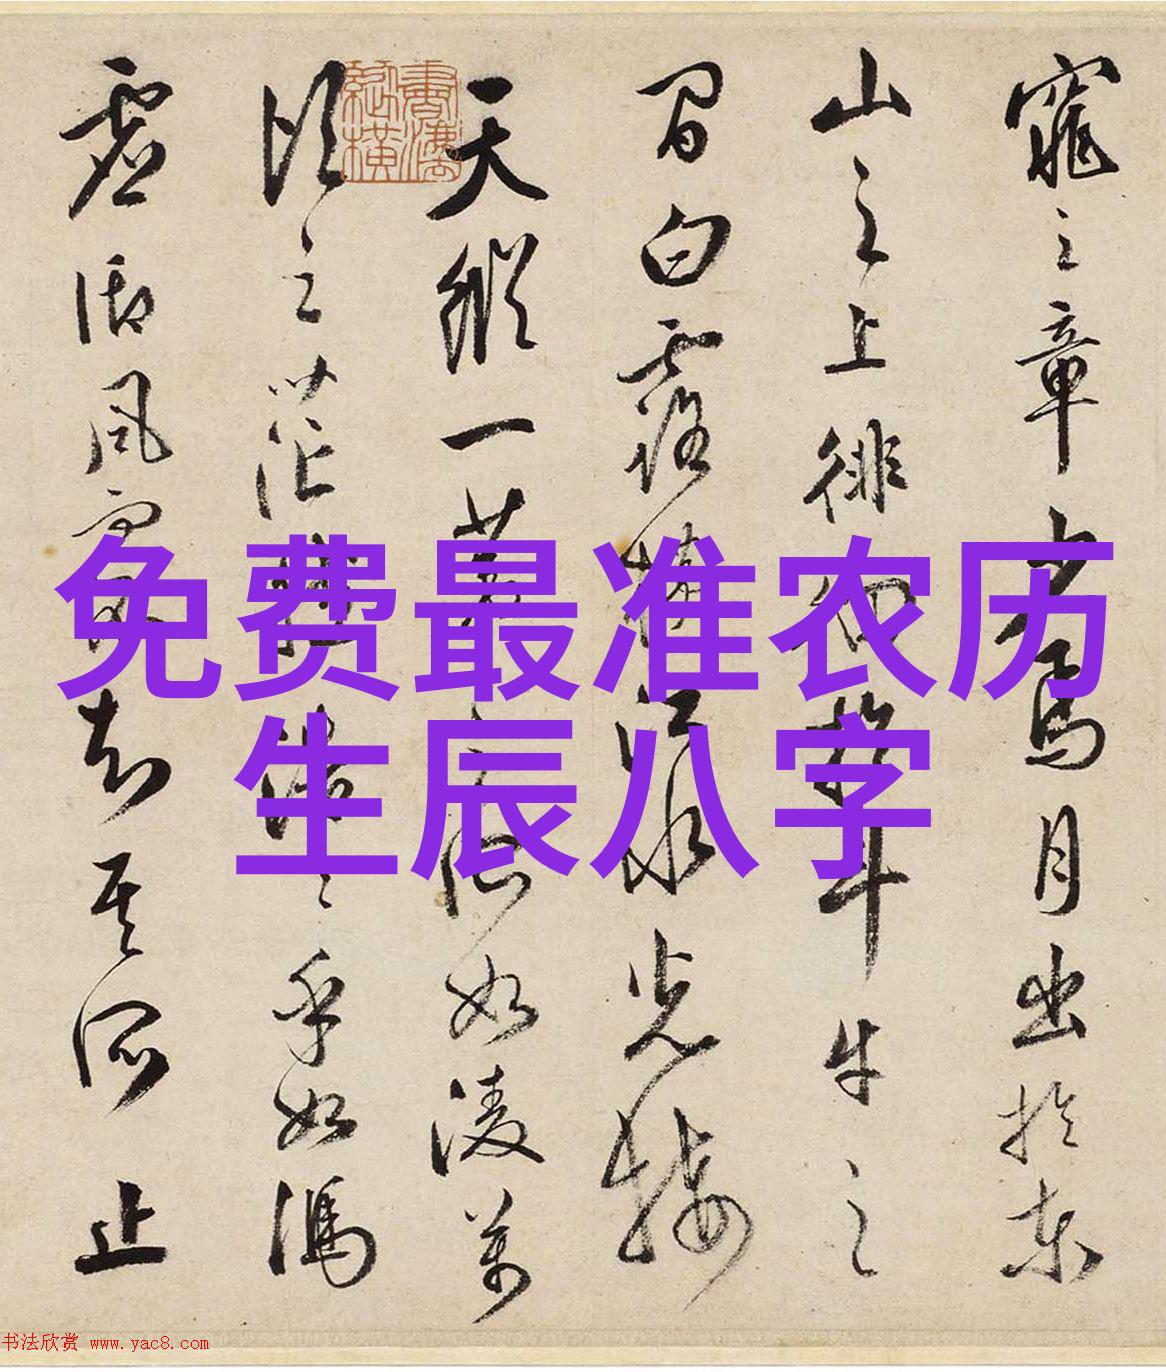 免费最准农历
生辰八字
窕之章少焉月出於東
山之上徘徊於斗牛之
間白露橫江水光接
天縱一葦之所如凌萬
頃之茫然浩〻乎如馮
虛御風而不知其所止
书法欣赏 www.yac8.com